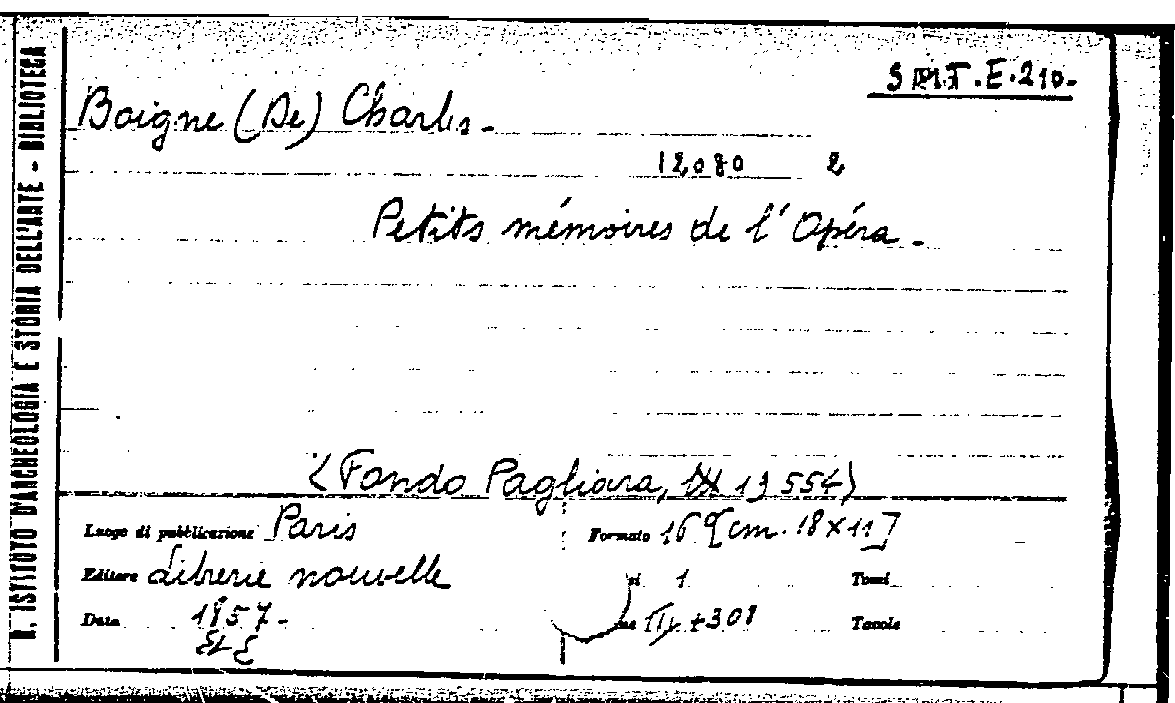 R. ISTITUTO D'ARCHEOLOGIA E STORIA DELL'ARTE - BIBLIOTECA
S.M.T.E.210-
Boigne (De) Charles.
12080 2
Petits mémoires de l'Opéra.
(Fondo Pagliara, 13554)
Luogo di pubblicazione Paris
Formato 16º [cm. 18x11]
Editore Librerie nouvelle
1
Tomi
Data 1857.
+301
Tavole